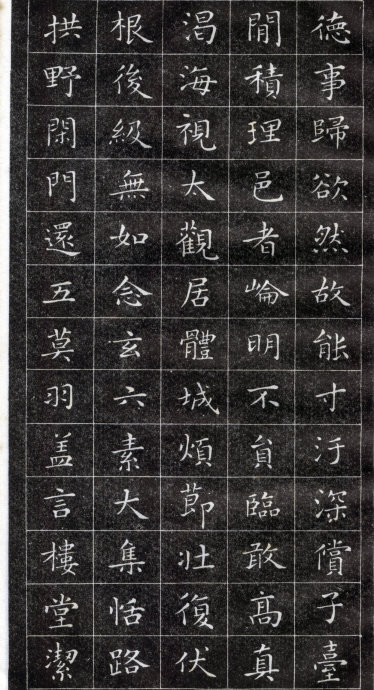 徳事歸欲然故能寸汙深償子臺
閒積理邑者崘明不負臨敢高真
渴海視太觀居體城煩莭壯復伏
根後級無如念玄六素大集恬路
拱野閑門還五莫羽盖言樓堂潔